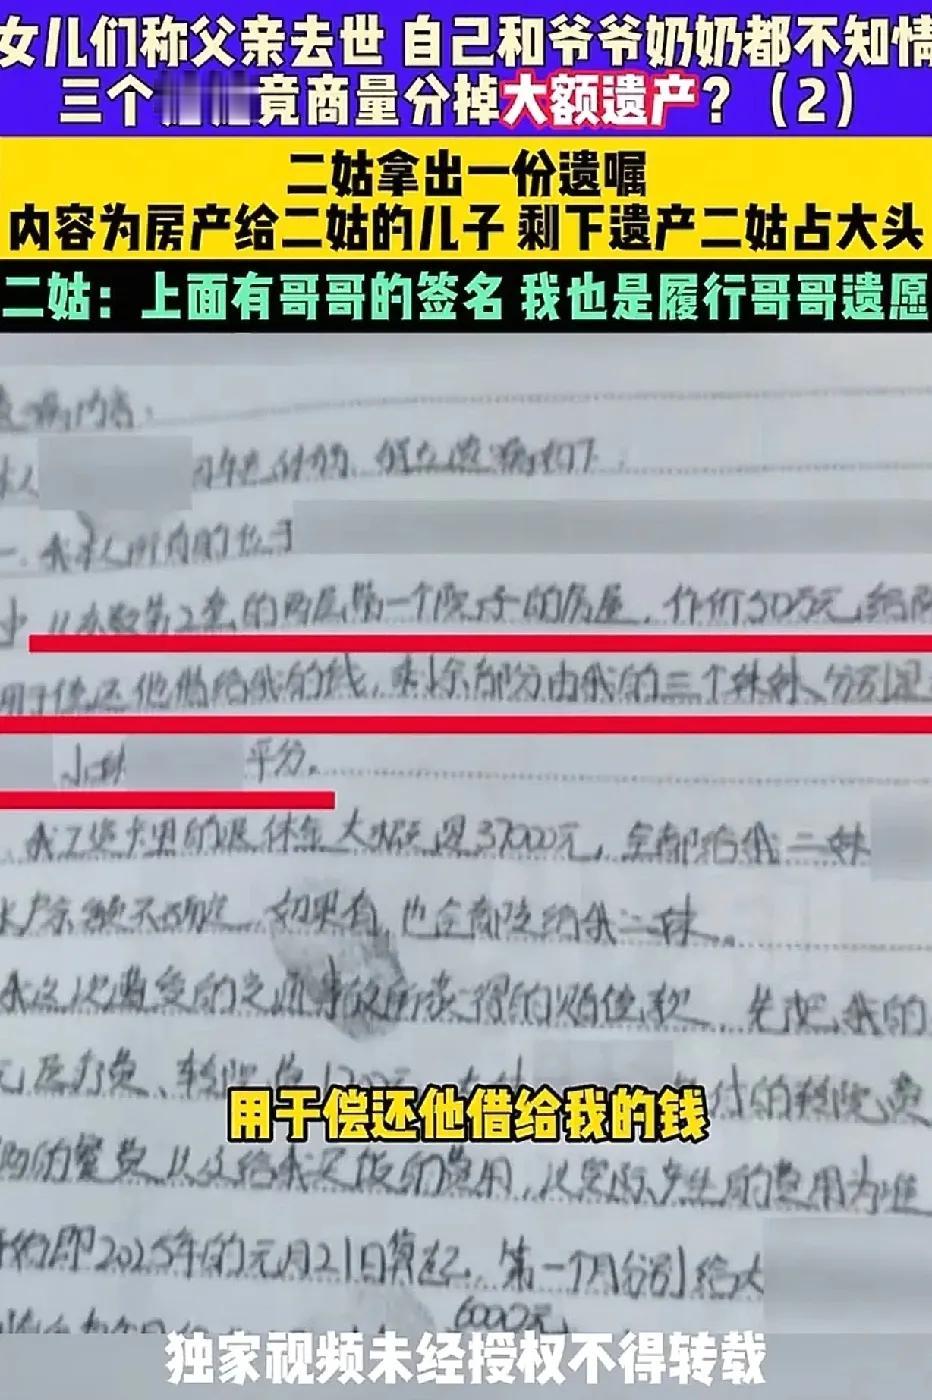 女儿们称父亲去世 自己和爷爷奶奶都不知情
三个 竟商量分掉大额遗产？（2）
二姑拿出一份遗嘱
内容为房产给二姑的儿子 剩下遗产二姑占大头
二姑：上面有哥哥的签名 我也是履行哥哥遗愿
遗嘱内容：
本人
立遗嘱如下：
一、我本人所有的位于
第2套的两层第一个院子的房屋，作价30万元给
用于偿还他借给我的钱，剩余部分由我的三个妹妹，分别是
小妹 平分。
我工资卡里的退休金大概是37000元，全部给我二妹
余额不确定，如果有，也全部留给我二妹。
我这次遭受的交通事故所获得的赔偿款，先把我的
医疗费、转院费1200元 付的转院费
的餐费以及给我买饭的费用，以实际产生的费用为准
即2025年的元月21日算起，第一个月分别给大
6000元
用于偿还他借给我的钱
独家视频未经授权不得转载